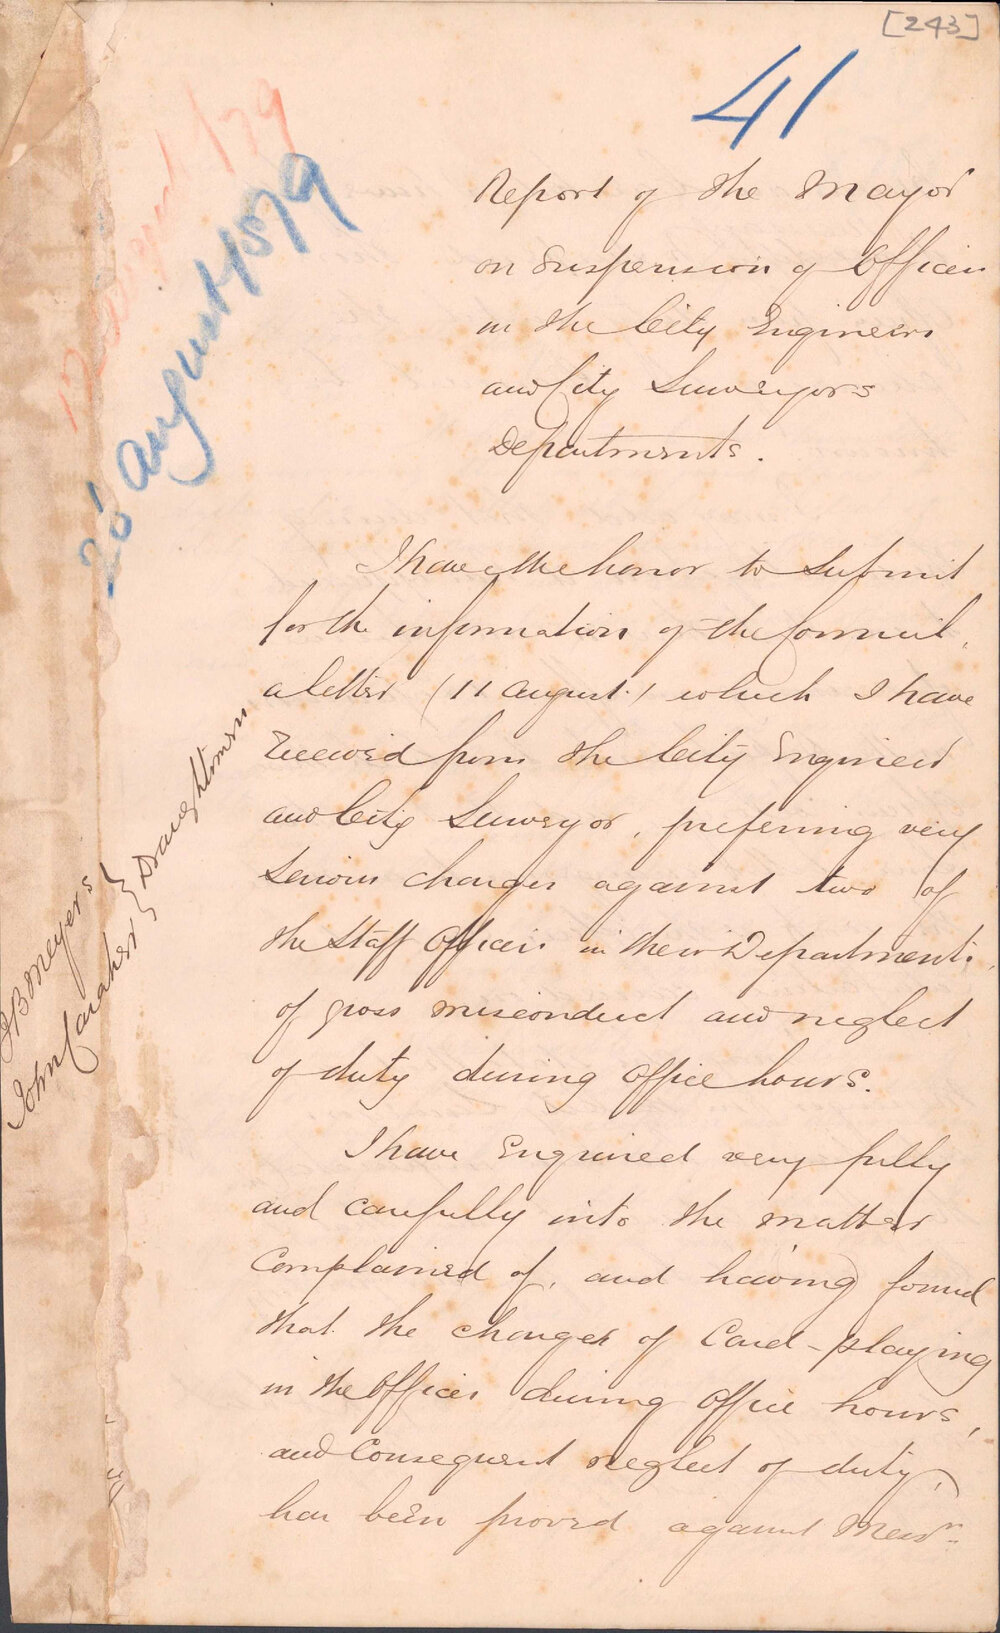 [243]
41
26 August 1879
Report of the Mayor
on Suspension of Officers
in the City Engineers
and City Surveyors
Departments.
I have the honor to submit
for the information of the Council,
a letter (11 August) which I have
received from the City Engineer
and City Surveyor, preferring very
serious charges against two of
the Staff Officers in their Departments,
of gross misconduct and neglect
of duty during office hours.
I have enquired very fully
and carefully into the matter
complained of, and having found
that the charges of Card-playing
in the Offices during office hours,
and consequent neglect of duty,
has been proved against Messrs
J B Meyers
John Caraher } Draughtsmen